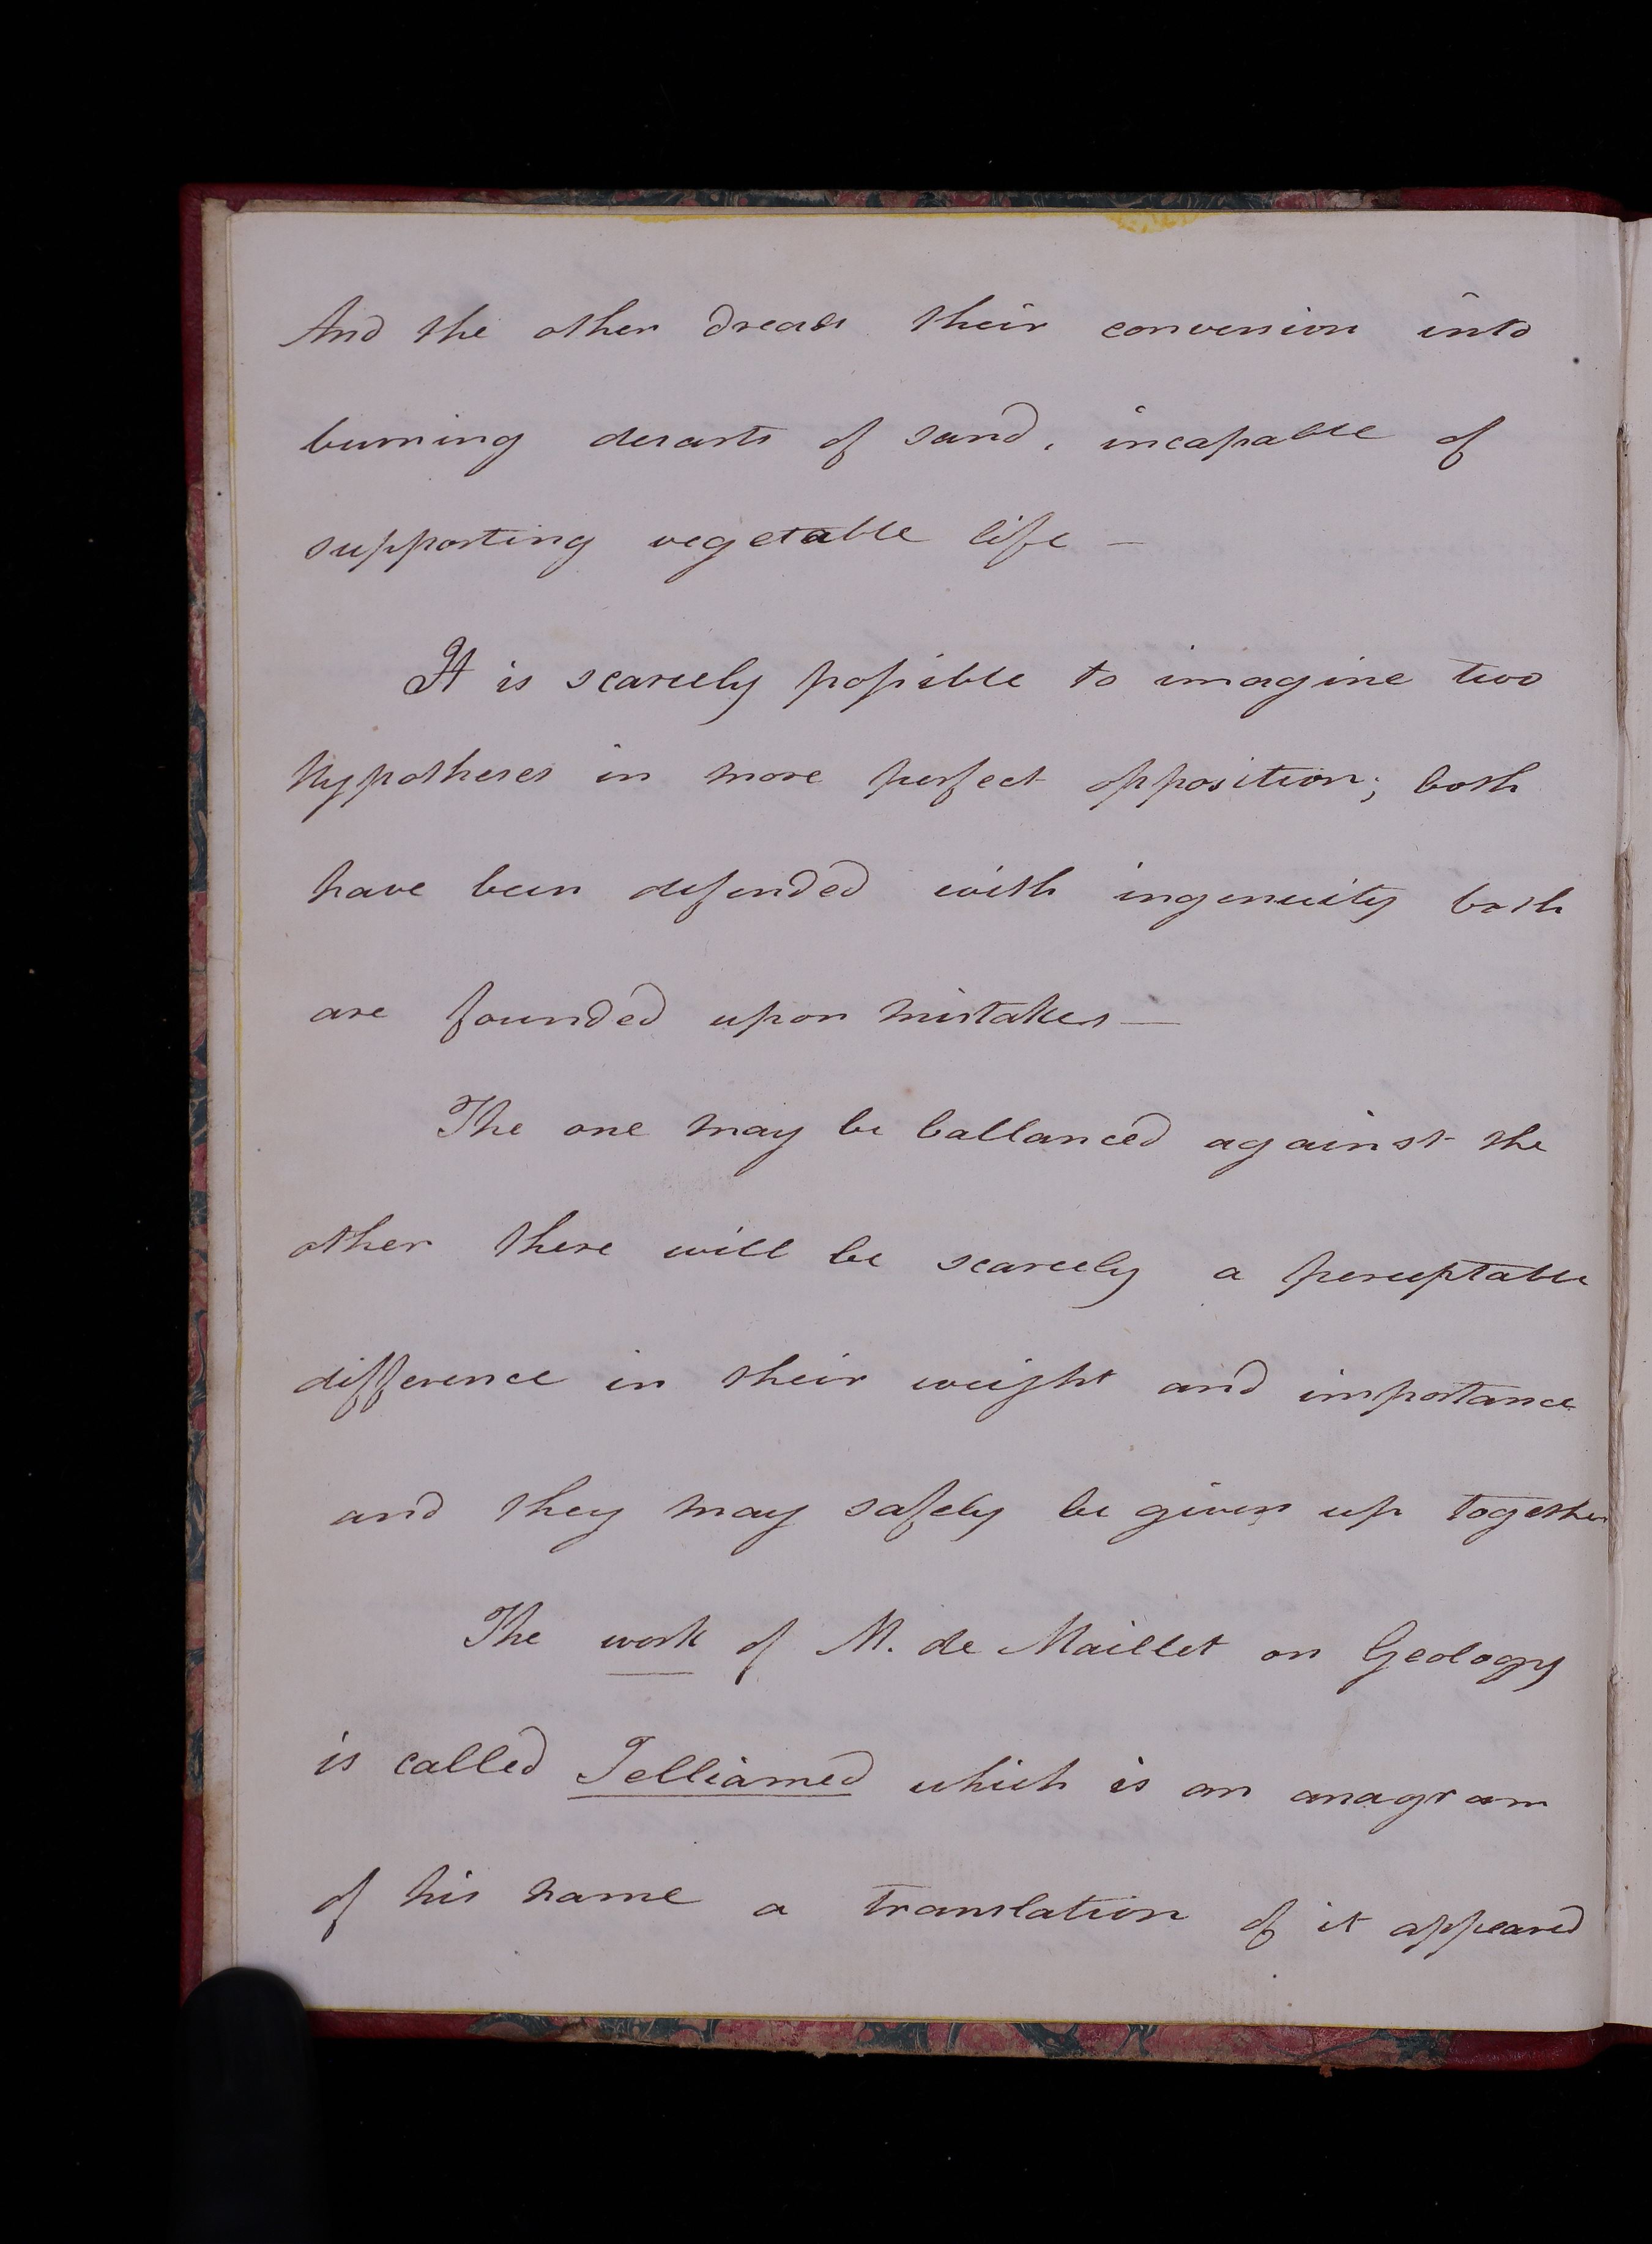 And the other dreads their conversion into
burning desarts of sand, incapable of
supporting vegetable life —
It is scarcely possible to imagine two
hypotheses in more perfect opposition; both
have been defended with ingenuity both
are founded upon mistakes —
The one may be ballanced against the
other there will be scarcely a perceptable
difference in their weight and importance
and they may safely be given up together
The work of M. de Maillet on Geology
is called Telliamed which is an anagram
of his name a translation of it appeared